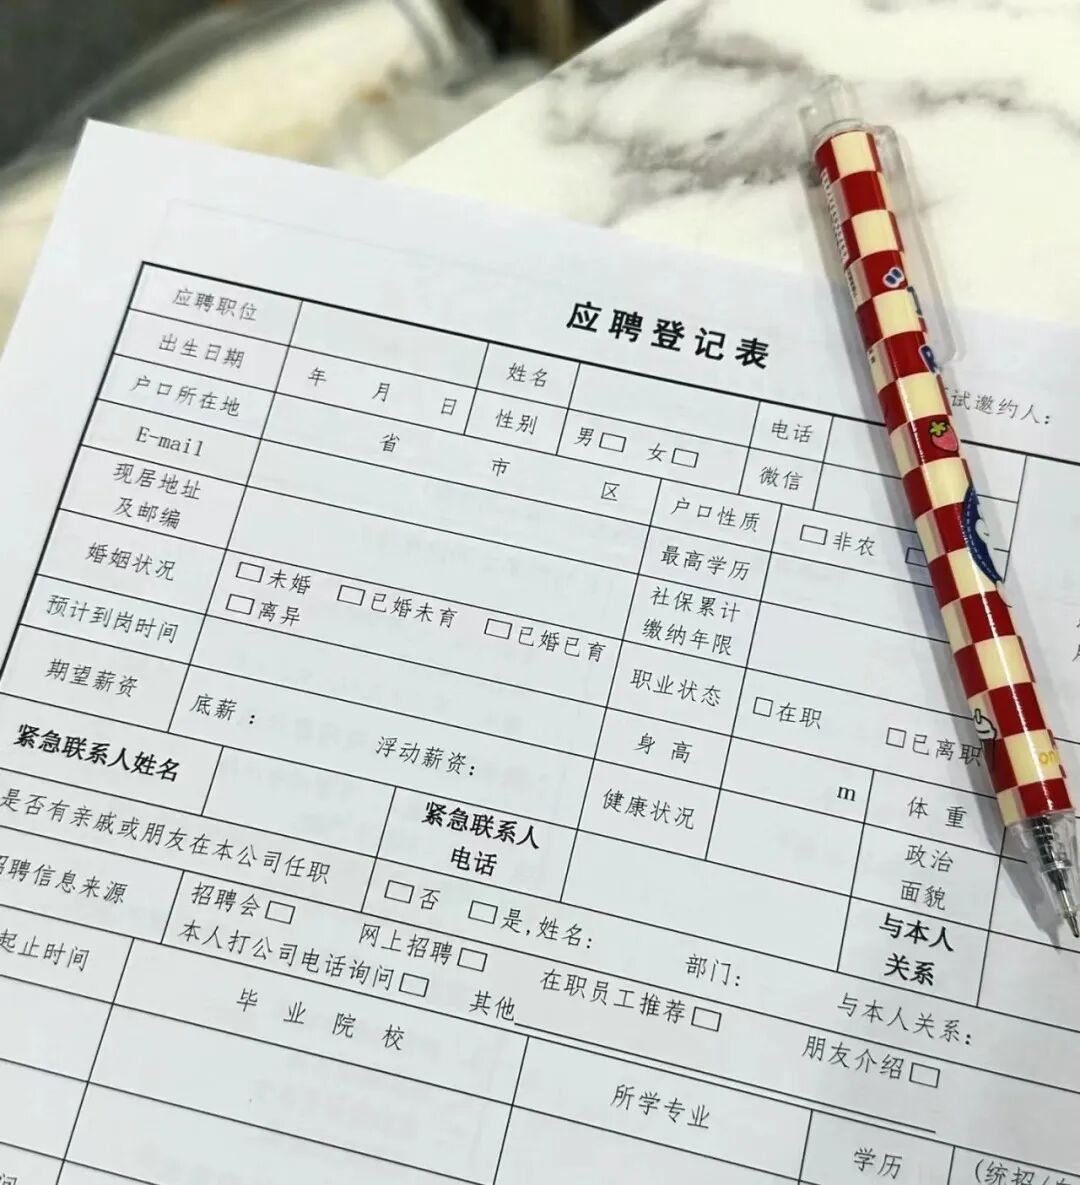 应聘登记表
试邀约人:
应聘职位
姓名
电话
出生日期
年 月 日
性别
男□ 女□
微信
户口所在地
省 市 区
户口性质
□非农
E-mail
最高学历
现居地址
及邮编
社保累计
缴纳年限
婚姻状况
□未婚 □已婚未育 □已婚已育
□离异
职业状态
□在职 □已离职
预计到岗时间
身高
m
体重
期望薪资
底薪: 浮动薪资:
健康状况
政治
面貌
紧急联系人姓名
紧急联系人
电话
与本人
关系
是否有亲戚或朋友在本公司任职
□否 □是,姓名: 部门: 与本人关系:
聘信息来源
招聘会□ 网上招聘□ 在职员工推荐□ 朋友介绍□
本人打公司电话询问□ 其他
起止时间
毕业院校
所学专业
学历
(统招/